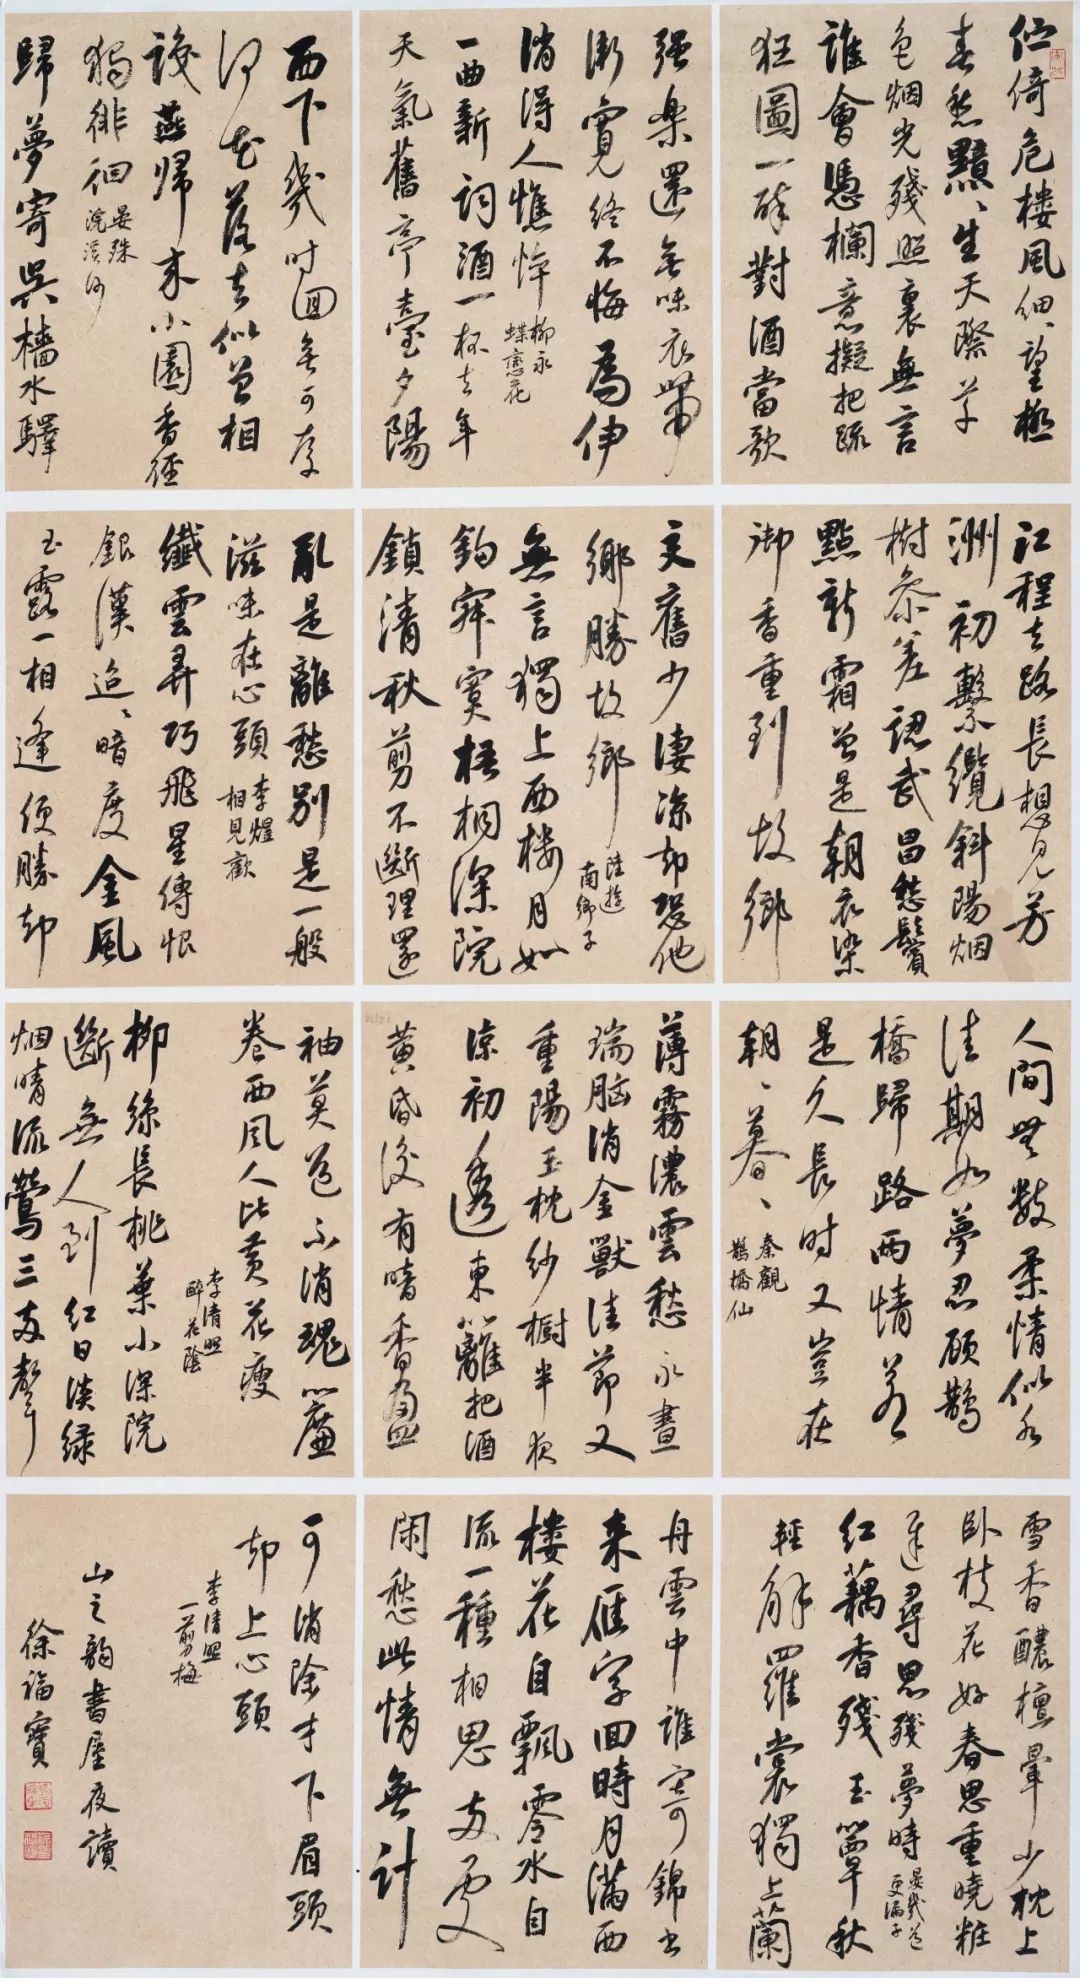 伫倚危楼風細、望極
春愁黯、生天際草
色烟光殘照裏無言
誰會憑欄意擬把疏
狂圖一醉對酒當歌
强樂還無味衣帶
漸寬終不悔為伊
消得人憔悴
柳永
蝶戀花
一曲新詞酒一杯去年
天氣舊亭臺夕陽
西下幾时回無可奈
何花落去似曾相
識燕歸来小園香徑
獨徘徊
晏殊
浣溪沙
歸夢寄吳檣水驛
江程去路長想見芳
洲初繫纜斜陽烟
樹參差認武昌愁鬢
點新霜曾是朝衣染
御香重到故鄉
交舊少凄涼却恐他
鄉勝故鄉
陸遊
南鄉子
無言獨上西樓月如
鈎寂寞梧桐深院
鎖清秋剪不斷理還
亂是離愁别是一般
滋味在心頭
李煜
相見歡
纖雲弄巧飛星傳恨
銀漢迢、暗度金風
玉露一相逢便勝却
人間無数柔情似水
佳期如夢忍顧鵲
橋歸路兩情若
是久長时又豈在
朝、暮、
秦觀
鵲橋仙
薄霧濃雲愁永晝
瑞脑消金獸佳節又
重陽玉枕纱橱半夜
涼初透東籬把酒
黄昏後有暗香盈
袖莫道不消魂簾
卷西風人比黄花瘦
李清照
醉花陰
柳絲長桃葉小深院
斷無人到紅日淡绿
烟晴流鶯三两聲
雪香醲檀暈少枕上
卧枝花好春思重曉粧
遲尋思殘夢時
晏幾道
更漏子
红藕香殘玉簟秋
輕解羅裳獨上蘭
舟雲中誰寄錦書
来雁字回時月滿西
樓花自飄零水自
流一種相思两處
閑愁此情無計
可消除才下眉頭
却上心頭
李清照
一剪梅
山之韵書屋夜讀
徐福寶